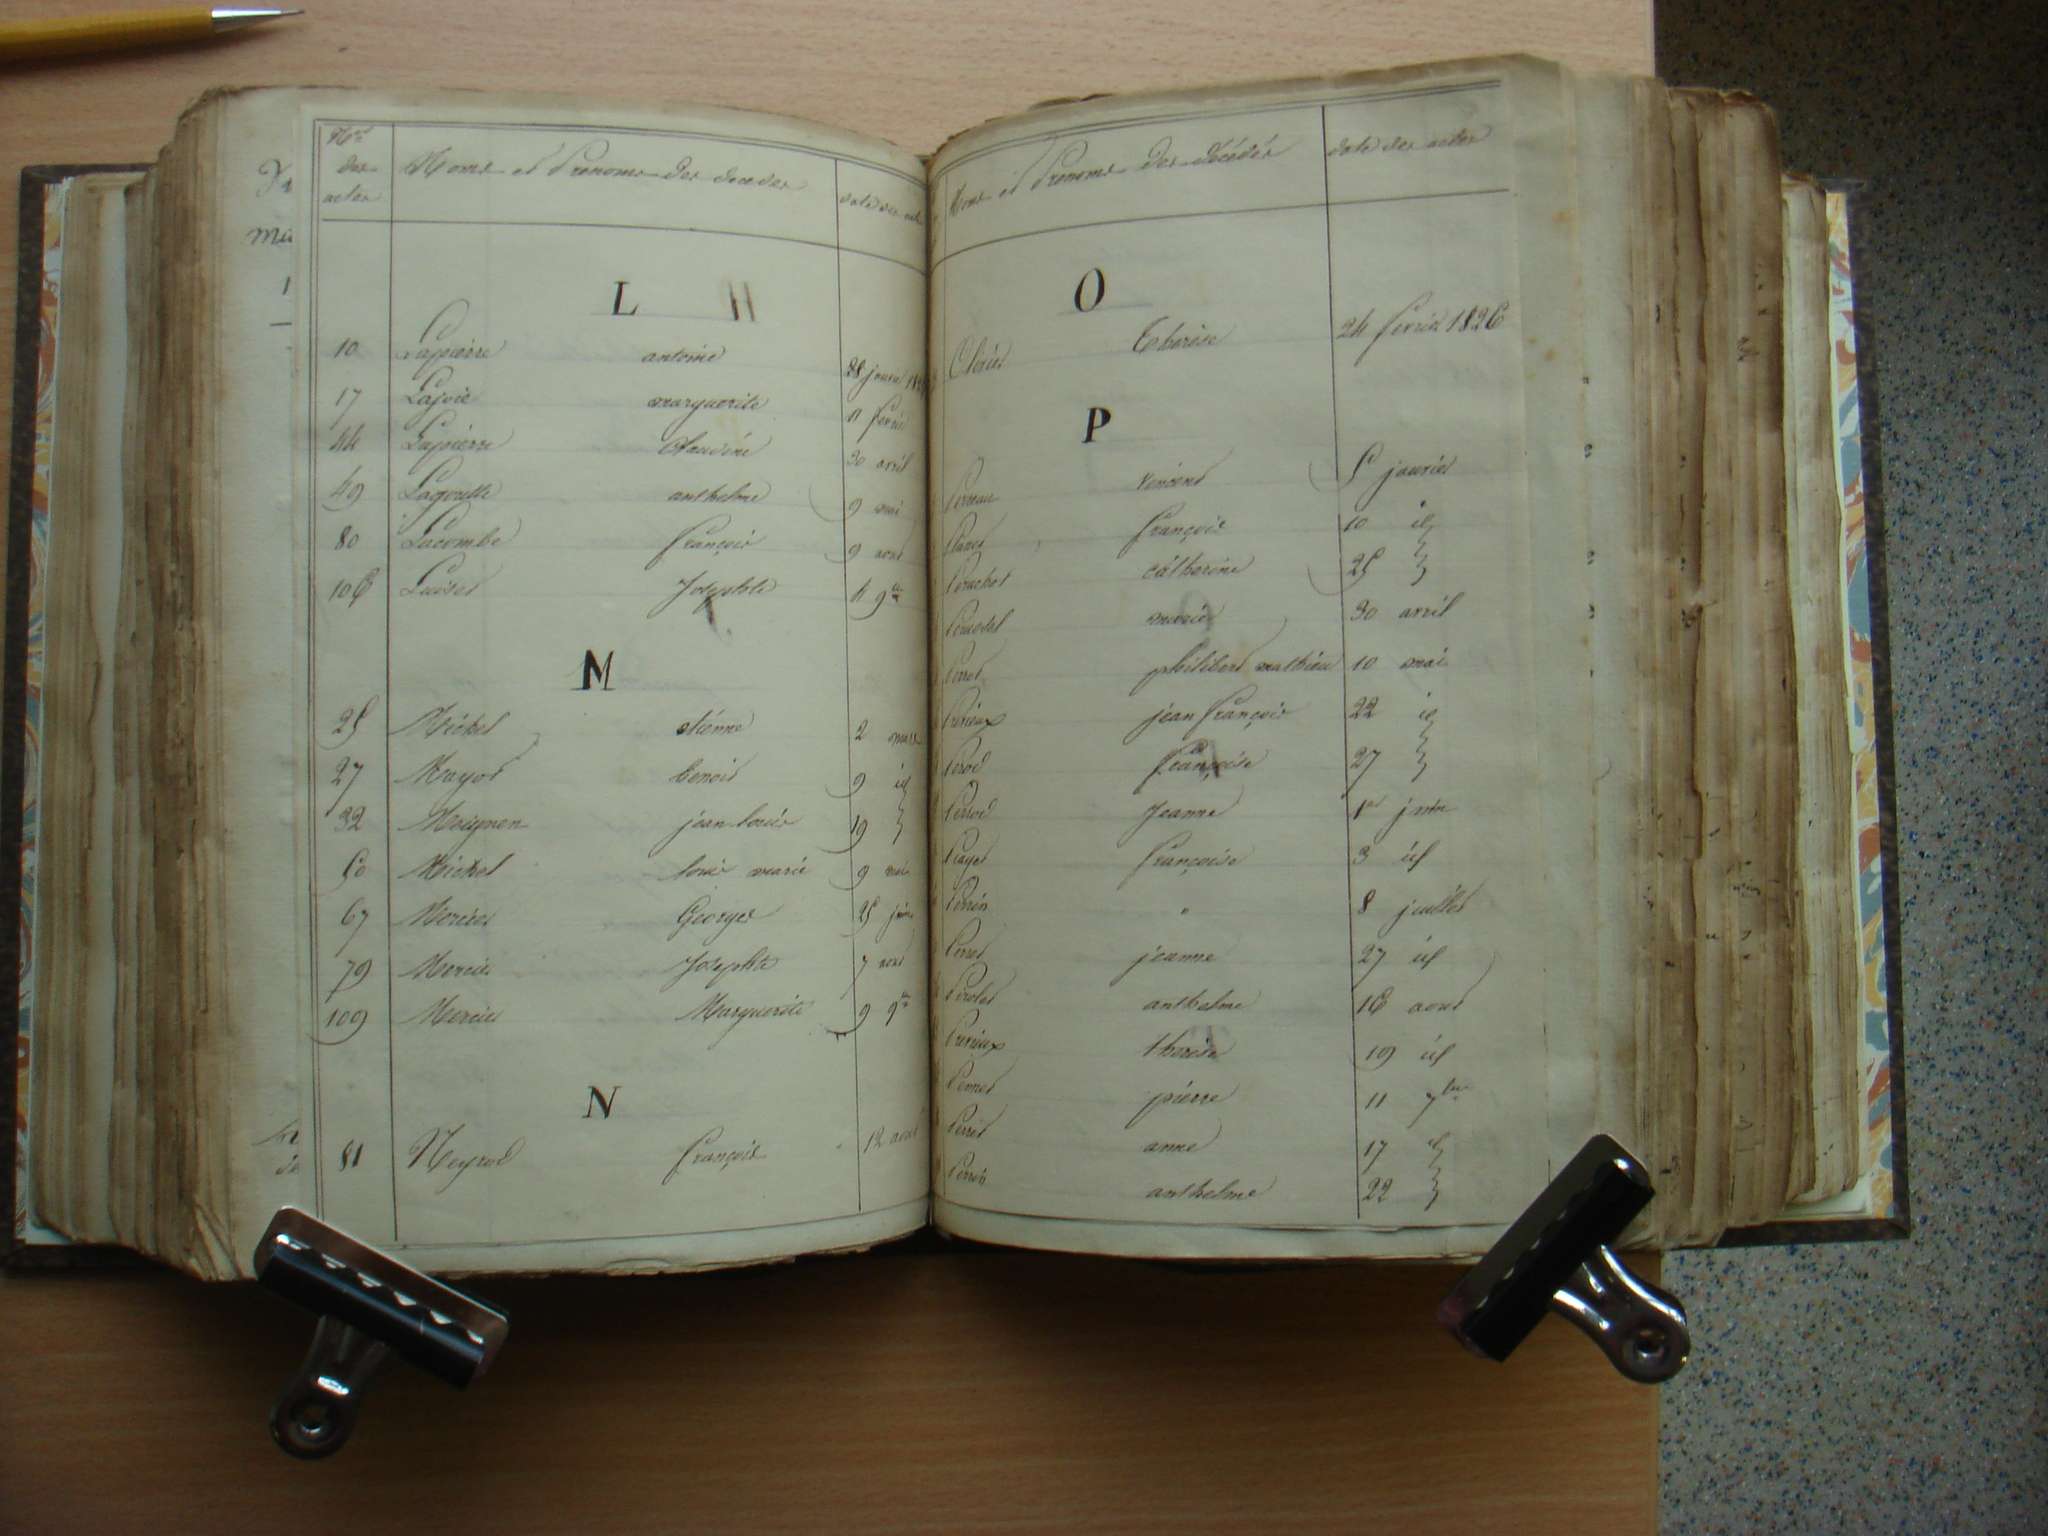 Nos des actes
Noms et Prénoms des décédés
date des actes
L
10 Lapierre antoine 28 janvier
17 Lajoie marguerite 11 fevrier
44 Lapierre Claudine 30 avril
49 anthelme 9 mai
80 Lacombe François 9 aout
106 Luiset Josephte 4 9bre
M
25 Michel etienne 2 mars
27 Mayot benoit 9 id
32 Meignon jean louis 19
50 Michel louis marie 9 mai
67 Mercier Georges 25 juin
79 Mercier Josephte 7 aout
109 Mercier Marguerite 9 9bre
N
81 Neyrod François 12 aout
Noms et Prénoms des décédés
date des actes
O
Thérèse 24 fevrier 1826
P
vincent 5 janvier
François 10 id
catherine 25
marie 30 avril
Perret philibert mathieu 10 mai
jean François 22 id
Perod Françoise 27
Perrod Jeanne 1er juin
Françoise 3 id
Perrin " 8 juillet
Perret jeanne 27 id
anthelme 16 aout
thérèse 19 id
pierre 11 7bre
Perret anne 17 id
anthelme 22